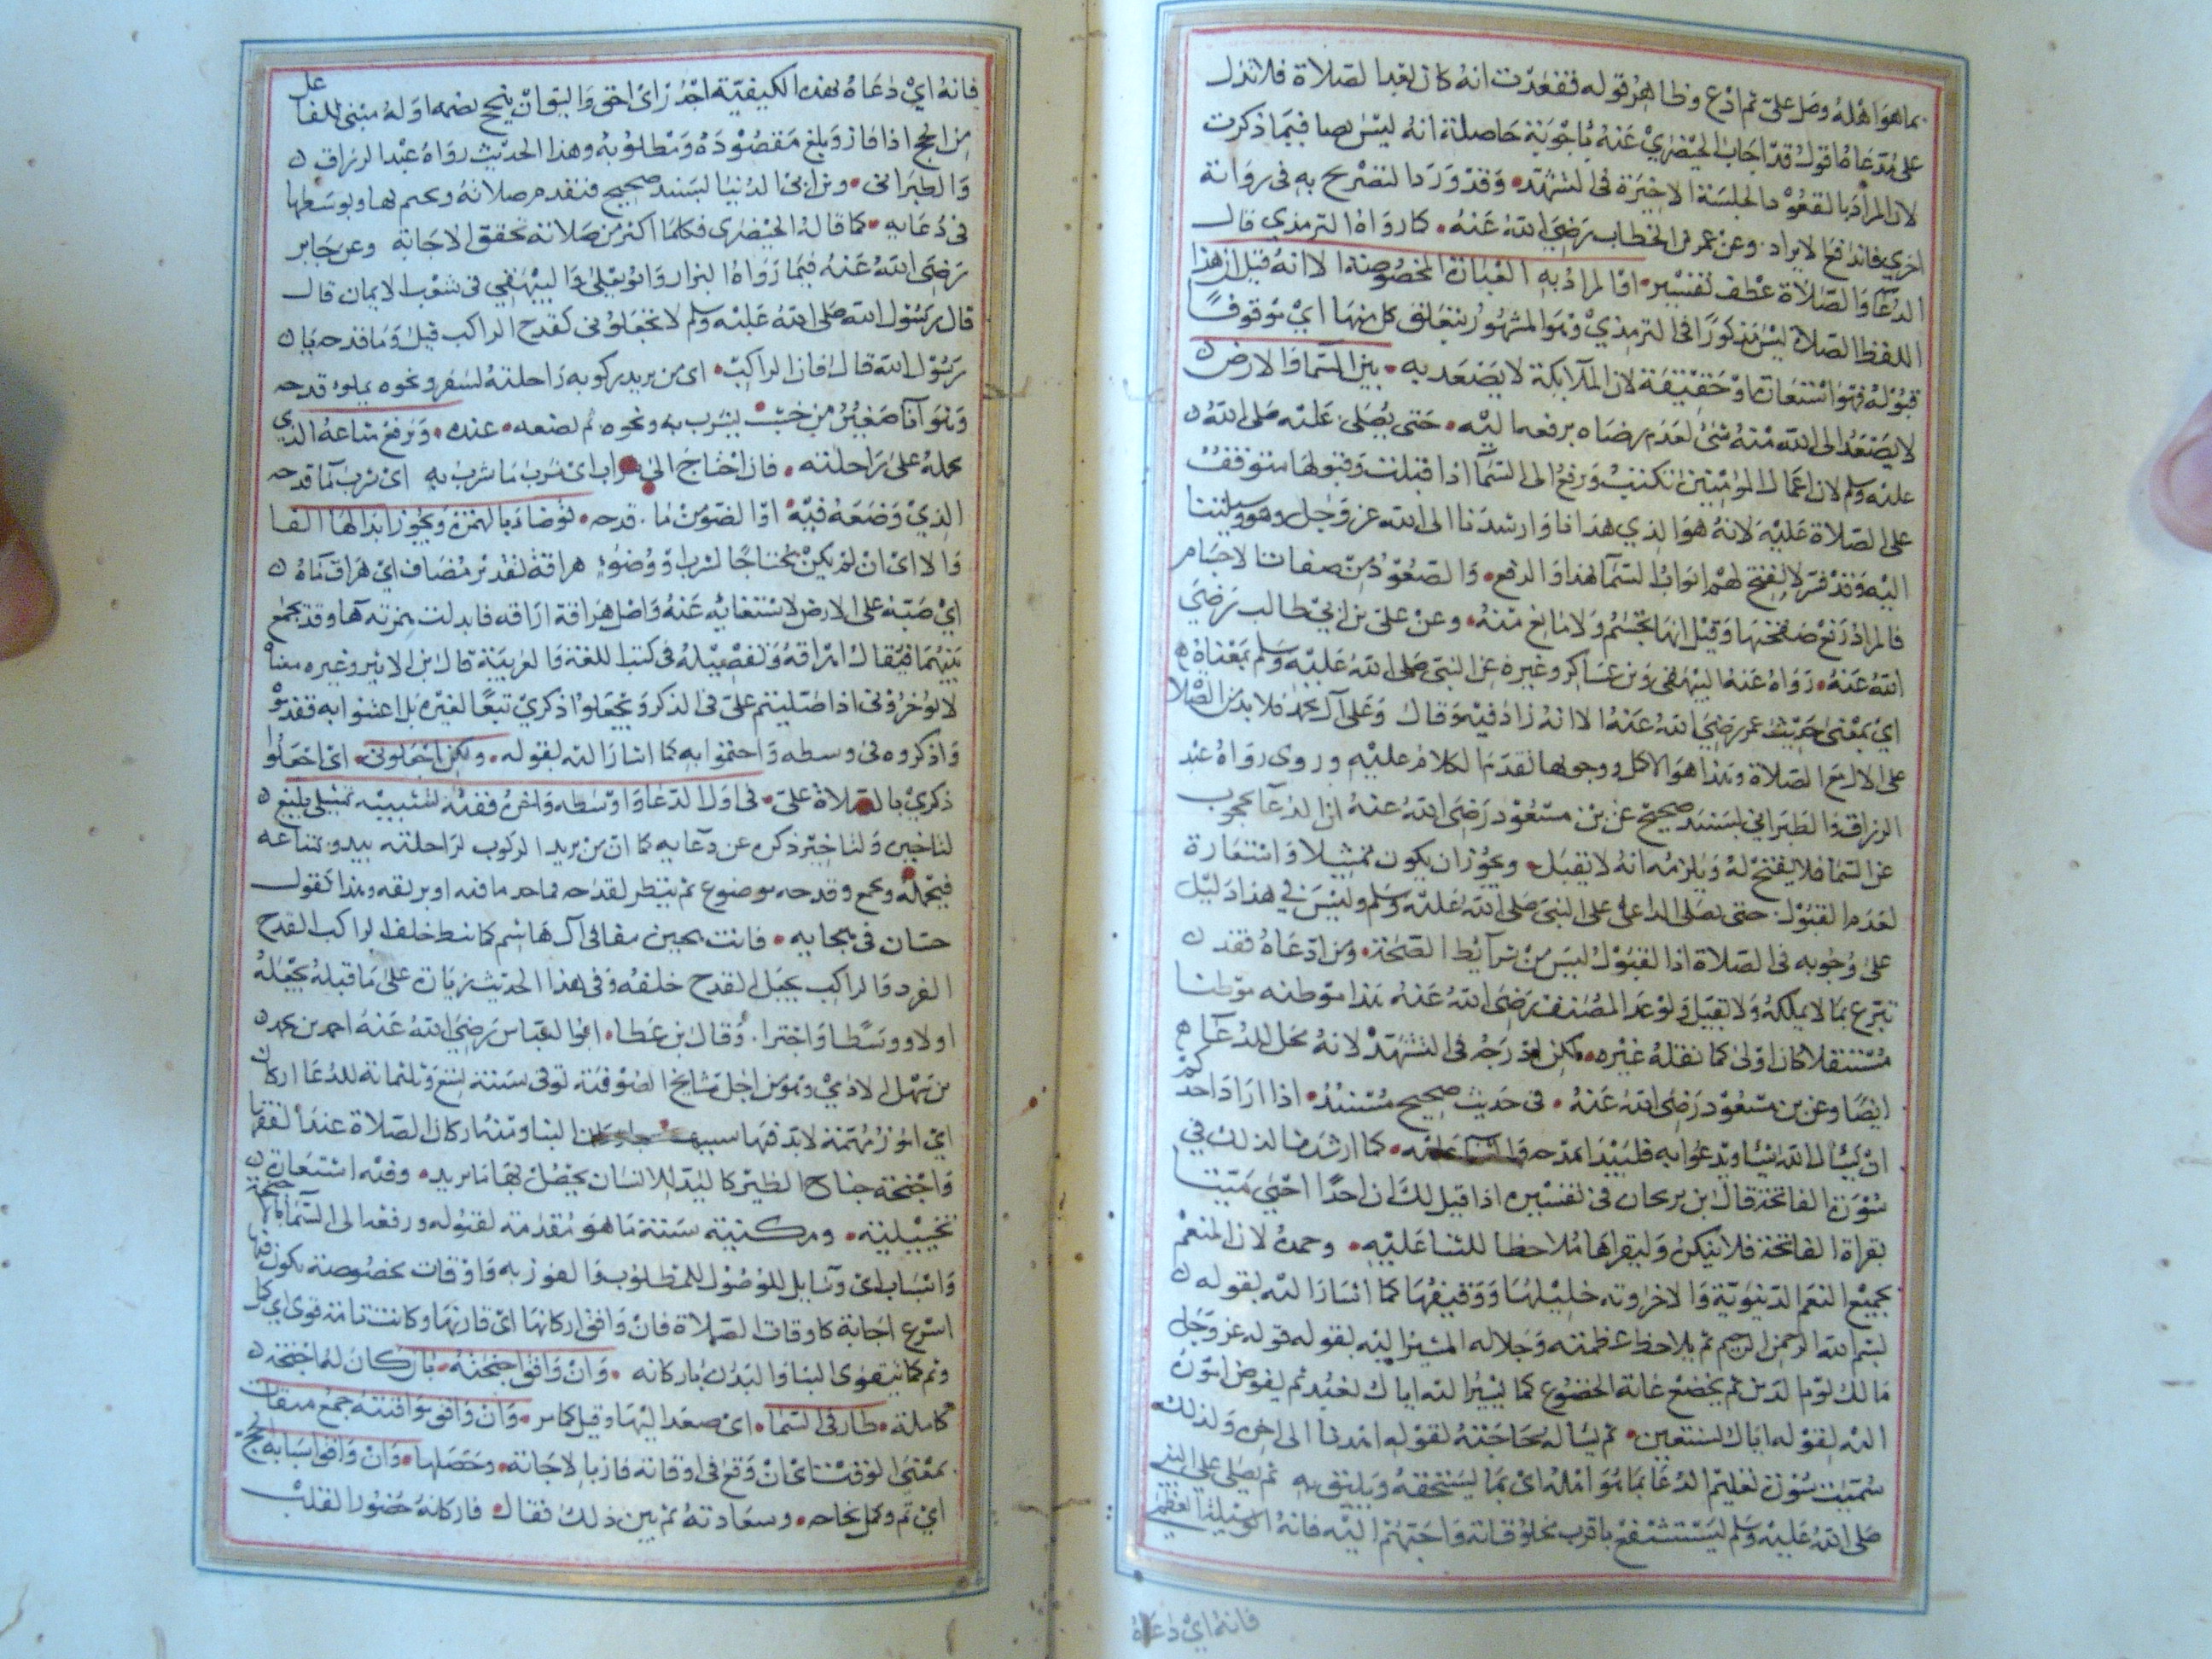 بما هو اهله وصل علي ثم ادع وظاهر قوله فقعدت انه كان بعد الصلاة فلا تدل
على مدعاه اقول قد اجاب الخيضري عنه باجوبة حاصلة انه ليس نصا فيما ذكرت
لان المراد بالقعود الجلسة الاخيرة في التشهد وقد ورد التصريح به في رواية
اخرى فاندفع الايراد وعن عمر بن الخطاب رضي الله عنه كما رواه الترمذي قال
الدعا والصلاة عطف تفسير او المراد به العبادة المخصوصة الا انه قيل ان هذا
اللفظ الصلاة ليس مذكورا في الترمذي وهو المشهور يتعلق كل منهما اي موقوف
قبوله فهو استعارة او حقيقة لان الملائكة لا يصعد به بين السما والارض
لا يصعد الى الله منه شئ لعدم رضاه برفعه اليه حتى يصلى عليه صلى الله
عليه وسلم لان اعمال المؤمنين تكتب وترفع الى السما اذا قبلت وقبولها متوقف
على الصلاة عليه لانه هو الذي هدانا وارشدنا الى الله عز وجل وهو وسيلتنا
اليه وقد فسر لا تفتح لهم ابواب السما بهذا والرفع والصعود من صفات الاجسام
فالمراد رفع صحفتها وقيل انها تجسم ولا مانع منه وعن علي بن ابي طالب رضي
الله عنه رواه عنه البيهقي وبن عساكر وغيره عن النبي صلى الله عليه وسلم بمعناه
اي بمعنى حديث عمر رضي الله عنه الا انه زاد فيه وقال وعلى آل محمد فلا بد من الصلاة
على الال مع الصلاة وهذا هو الاكمل ووجوبها تقدم الكلام عليه وروى رواه عبد
الرزاق والطبراني بسند صحيح عن بن مسعود رضي الله عنه ان الدعا محجوب
عن السما فلا يفتح له ويلزمه انه لا يقبل ويجوز ان يكون تمثيلا واستعارة
لعدم القبول حتى يصلى الداعي على النبي صلى الله عليه وسلم وليس في هذا دليل
على وجوبه في الصلاة اذ القبول ليس من شرائط الصحة ومن ادعاه فقد
تبرع بما لا يملكه ولا يقبل ولو عد المصنف رضي الله عنه هذا موطنه موطنا
مستقلا كان اولى كما نقله غيره لكن ادرجه في التشهد لانه محل للدعا
ايضا وعن بن مسعود رضي الله عنه في حديث صحيح مسند اذا اراد احدكم
ان يسال الله شيا ويدعوا به فليبدا بمدحه والثنا عليه كما ارشدنا لذلك في
سورة الفاتحة قال بن برجان في تفسيره اذا قيل لك ان احدا احيي ميتا
بقراة الفاتحة فلا تنكر وليقراها ملاحظا للثنا عليه وحمده لان المنعم
بجميع النعم الدنيوية والاخروية جليلها ودقيقها كما اشار اليه بقوله
بسم الله الرحمن الرحيم ثم يلاحظ عظمته وجلاله المشير اليه بقوله قوله عز وجل
مالك يوم الدين ثم يخضع غاية الخضوع كما يشير اليه اياك نعبد ثم يفوض اموره
اليه لقوله اياك نستعين ثم يساله حاجته لقوله اهدنا الى اخره ولذلك
سميت سورة تعليم الدعا بما هو اهله اي بما يستحقه ويليق به ثم يصلي على النبي
صلى الله عليه وسلم ليستشفع باقرب مخلوقاته واحبهم اليه فانه الوسيلة العظمى
فانه اي دعاه
فانه اي دعاه بهذه الكيفية اجدر اى احق واليق ان ينجح بضم اوله مبنى للفاعل
من انجح اذا فاز وبلغ مقصوده ومطلوبه وهذا الحديث رواه عبد الرزاق
والطبراني وبن ابي الدنيا بسند صحيح فتقدم صلاته ويختم بها ويوسطها
في دعايه كما قاله الخيضري فكلما اكثر من صلاته تحقق الاجابة وعن جابر
رضي الله عنه فيما رواه البزار وابو يعلى والبيهقي في شعب الايمان قال
قال رسول الله صلى الله عليه وسلم لا تجعلوني كقدح الراكب قيل وما قدحه يا
رسول الله قال فان الراكب اى من يريد ركوبه راحلته لسفر ونحوه يملؤ قدحه
وهو آنا صغير من خشب يشرب به ونحوه ثم يضعه عنده ويرفع متاعه الذي
يحمله على راحلته فان احتاج الى شراب اى شرب ما شرب به اى شرب ما قدحه
الذي وضعه فيه او الضومن ما قدحه توضا بالهمزة ويجوز ابدالها الفا
والا اى ان لم يكن محتاجا لشرب ووضوء هراقه بتقدير مضاف اي هراق ماه
اي صبه على الارض لاستغنايه عنه واصل هراقه اراقه فابدلت همزته ها وقد يجمع
بينهما فيقال اهراقه وتفصيله في كتب اللغة والعربية قال بن الاثير وغيره معناه
لا توخروني اذا صليتم على في الذكر وتجعلوا ذكري تبعا لغيره بل اعتنوا به فقدموا
واذكروه في وسطه واختموا به كما اشار اليه بقوله ولكن اجعلوني اى اجعلوا
ذكري بالصلاة على في اول الدعا واوسطه واخره ففيه تشبيه تمثيلي بليغ
لتاخير ذكره عن دعايه كما ان من يريد الركوب لراحلته يبدو بمتاعه
فيحمله ويجمع وقدحه موضوع ثم ينظر لقدحه فياخد ما فيه او يريقه وهذا كقول
حسان في هجايه فانت هجين مناط في آل هاشم كما نيط خلف الراكب القدح
الفرد والراكب يجعل القدح خلفه وفي هذا الحديث زيادة على ما قبله بجعله
اولا ووسطا واخرا وقال بن عطا ابو العباس رضي الله عنه احمد بن محمد
بن سهل الادمي وهو من اجل مشايخ الصوفية توفي سنة تسع وثلثماية للدعا اركان
اي امور مهمة لابد فيها البنا ومنها اركان الصلاة عند الفقها
واجنحة جناح الطير كاليد للانسان يحصل بها ما يريد وفيه استعارة
تخييلية ومكنية ما هو مقدمة لقبوله ورفعه الى السما
واسباب اى وسايل للوصول للمطلوب والفوز به واوقات مخصوصة يكون فيها
اسرع اجابة كاوقات الصلاة فان وافق اركانها اى قارنها وكانت تامة قوى اي كمل
وتم كما يتقوى البنا والبدن باركانه وان وافق اجنحته بان كان له اجنحة
كاملة طار في السما اى صعد اليها وقيل كما مر وان وافق مواقيته جمع ميقات
بمعنى الوقت اى ان وقع في اوقاته فاز بالاجابة وحصلها وان وافق اسبابه انجح
اي تم وكمل نجاحه وسعادته ثم بين ذلك فقال فاركانه حضور القلب